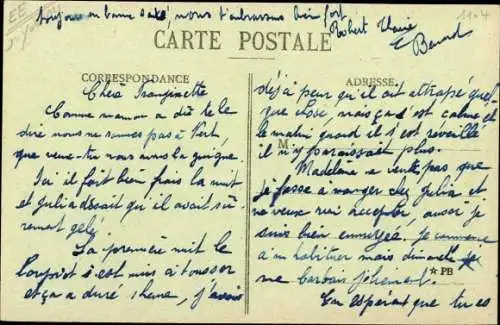 toujours en bonne santé, nous t'embrassons bien fort
Robert Claire
Benard
1904
CARTE POSTALE
CORRESPONDANCE
Chère Franginette
Comme maman a dû te le
dire nous ne sommes pas à Vert
que veux-tu nous avons la guigne.
Ici il fait bien frais la nuit
et Julia disait qu'il avait sû-
rement gelé.
La première nuit le
s'est mis à tousser
et ça a duré 1 heure, j'avais
ADRESSE
déjà peur qu'il ait attrapé quel-
que chose, mais ça s'est calmé et
le matin quand il s'est réveillé
M
il n'y paraissait plus.
Madeleine ne veut pas que
je fasse à manger chez Julia et
ne veux rien accepter, aussi je
suis bien ennuyée. Je commence
à m'habituer mais
me barbais joliment.
*PB
En espérant que tu es